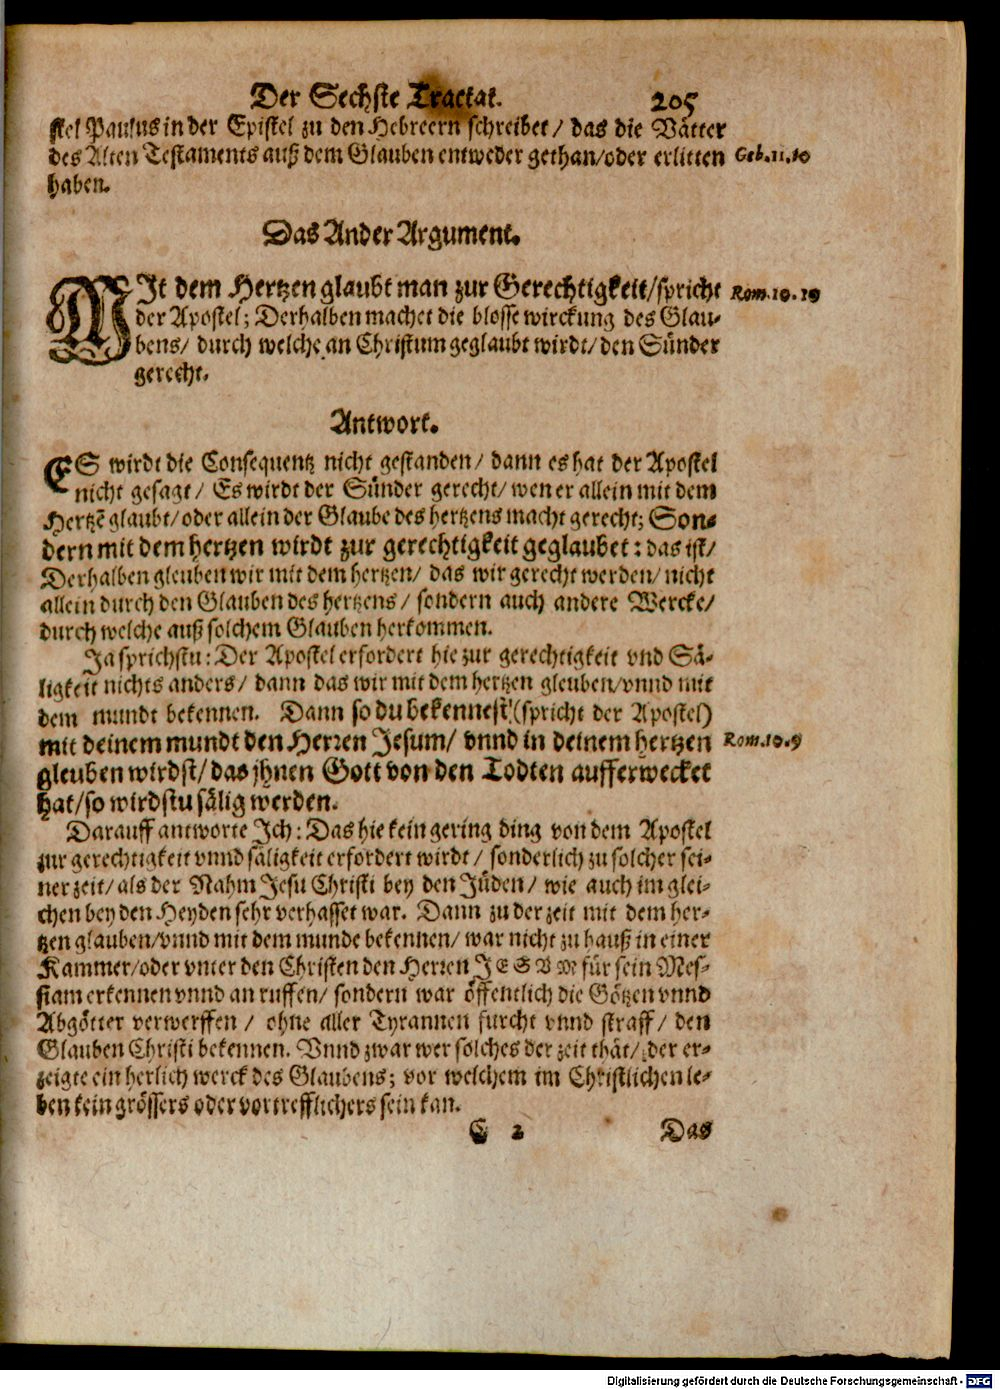 Der Sechste Tractat. 205
stel Paulus in der Epistel zu den Hebreern schreibet / das die Vätter
des Alten Testaments auß dem Glauben entweder gethan/oder erlitten Geb.11.10
haben.
Das Ander Argument.
MIt dem Hertzen glaubt man zur Gerechtigkeit/spricht Rom.10.10
der Apostel; Derhalben machet die blosse wirckung des Glau-
bens/ durch welche an Christum geglaubt wirdt/den Sünder
gerecht.
Antwort.
ES wirdt die Consequentz nicht gestanden/ dann es hat der Apostel
nicht gesagt/ Es wirdt der Sünder gerecht/wen er allein mit dem
Hertzē glaubt/oder allein der Glaube des hertzens macht gerecht; Son-
dern mit dem hertzen wirdt zur gerechtigkeit geglaubet: das ist/
Derhalben gleuben wir mit dem hertzen/ das wir gerecht werden/ nicht
allein durch den Glauben des hertzens/ sondern auch andere Wercke/
durch welche auß solchem Glauben herkommen.
Ja sprichstu: Der Apostel erfordert hie zur gerechtigkeit vnd Sä-
ligkeit nichts anders/ dann das wir mit dem hertzen gleuben/vnnd mit
dem mundt bekennen. Dann so du bekennest (spricht der Apostel)
mit deinem mundt den Herren Jesum/ vnnd in deinem hertzen Rom.10.9
gleuben wirdst/das jhnen Gott von den Todten aufferwecket
hat/so wirdstu sälig werden.
Darauff antworte Ich: Das hie kein gering ding von dem Apostel
zur gerechtigkeit vnnd säligkeit erfordert wirdt/ sonderlich zu solcher sei-
ner zeit/als der Nahm Jesu Christi bey den Jüden/ wie auch im glei-
chen bey den Heyden sehr verhasset war. Dann zu der zeit mit dem her-
tzen glauben/vnnd mit dem munde bekennen/ war nicht zu hauß in einer
Kammer/oder vnter den Christen den Herren JESVM für sein Mes-
siam erkennen vnnd an ruffen/ sondern war öffentlich die Götzen vnnd
Abgötter verwerffen/ ohne aller Tyrannen furcht vnnd straff/ den
Glauben Christi bekennen. Vnnd zwar wer solches der zeit thät/ der er-
zeigte ein herlich werck des Glaubens; vor welchem im Christlichen le-
ben kein grössers oder vortrefflichers sein kan.
C 2 Das
Digitalisierung gefördert durch die Deutsche Forschungsgemeinschaft - DFG